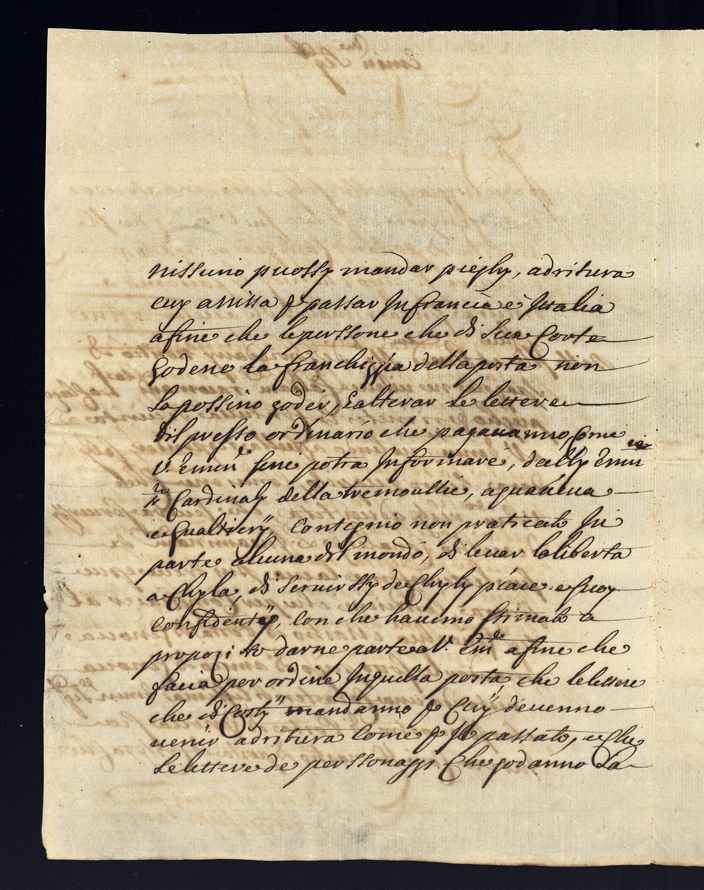 nissuno puossy mandar pieghy, adritura
cuy anissa p passar In francia e Italia
afine che le perssone che di Sua Corte
godeno la franchiggia della posta non
la possino goder, & alterar le lettere
dil presso ordinario che pagauanno, Come
V. Emin.ᵉ sene potra Informare, dally Emin
ᵐⁱ Cardinaly della tremoullie, aquauiua
e Gualtiery Contegnio non praticato In
parte alcuna dil mondo, di leuar la liberta
a Chyla, di seruirssy de Chyly piace. e suoy
Confidenty, Con che hauemo stimato a
propozito darne parte a V. Em.ᵉ afine che
facia per ordine In quella posta che le lettere
che di Costy mandanno p Cuy deuenno
uenir adritura Come p Il passato, e Che
le lettere de perssonaggi Che godanno La